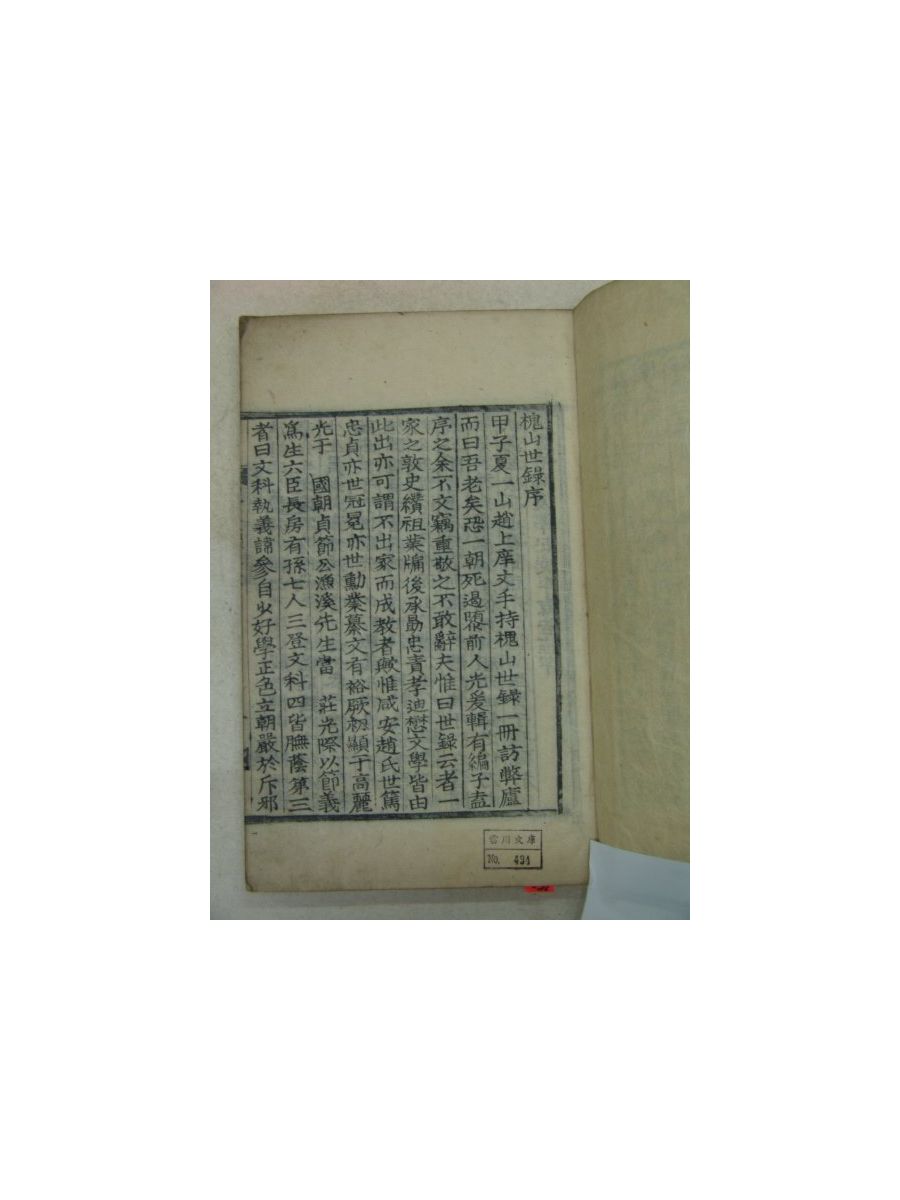 槐山世錄序
甲子夏一山趙上庠丈手持槐山世錄一冊訪弊廬
而曰吾老矣恐一朝死遏墜前人光爰輯有編子盍
序之余不文竊重敬之不敢辭夫惟曰世錄云者一
家之敦史纘祖業牖後承勗忠責孝迪懋文學皆由
此出亦可謂不出家而成教者歟惟咸安趙氏世篤
忠貞亦世冠冕亦世勳業纂文有裕厥初顯于高麗
光于 國朝貞節公漁溪先生當 莊光際以節義
爲生六臣長房有孫七人三登文科四皆膴蔭第三
者曰文科執義諱參自少好學正色立朝嚴於斥邪
雲川文庫
No. 494